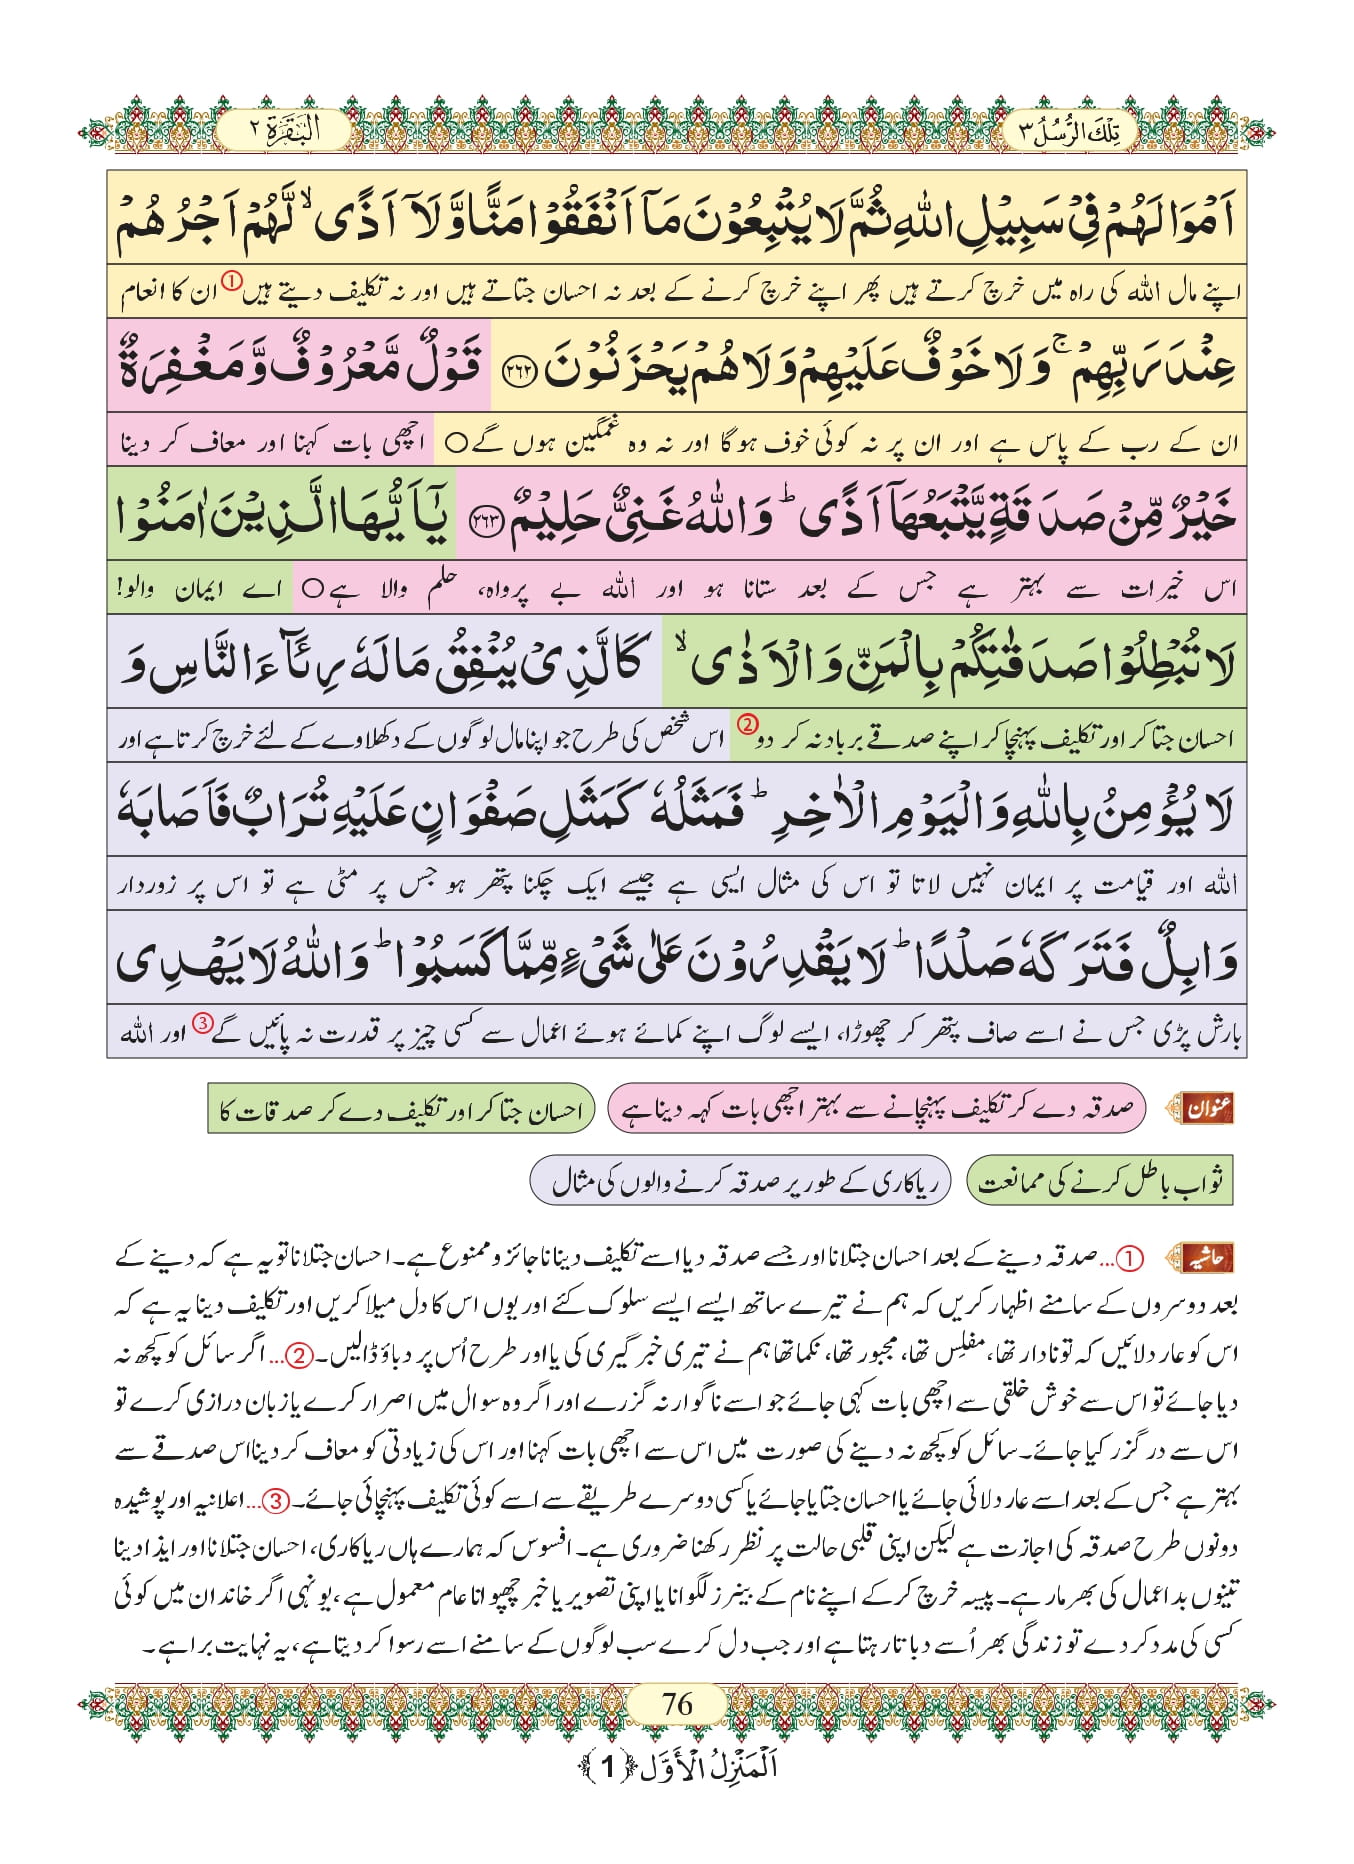 تِلْكَ الرُّسُلُ ٣
اَلْبَقَرَة ٢
اَمْوَالَهُمْ فِیْ سَبِیْلِ اللّٰهِ ثُمَّ لَا یُتْبِعُوْنَ مَاۤ اَنْفَقُوْا مَنًّا وَّ لَاۤ اَذًیۙ لَّهُمْ اَجْرُهُمْ
اپنے مال اللہ کی راہ میں خرچ کرتے ہیں پھر اپنے خرچ کرنے کے بعد نہ احسان جتاتے ہیں اور نہ تکلیف دیتے ہیں① ان کا انعام
عِنْدَ رَبِّهِمْۚ وَ لَا خَوْفٌ عَلَیْهِمْ وَ لَا هُمْ یَحْزَنُوْنَ﴿۲۶۲﴾ قَوْلٌ مَّعْرُوْفٌ وَّ مَغْفِرَةٌ
ان کے رب کے پاس ہے اور ان پر نہ کوئی خوف ہوگا اور نہ وہ غمگین ہوں گے○ اچھی بات کہنا اور معاف کر دینا
خَیْرٌ مِّنْ صَدَقَةٍ یَّتْبَعُهَاۤ اَذًیؕ وَ اللّٰهُ غَنِیٌّ حَلِیْمٌ﴿۲۶۳﴾ یٰۤاَیُّهَا الَّذِیْنَ اٰمَنُوْا
اس خیرات سے بہتر ہے جس کے بعد ستانا ہو اور اللہ بے پرواہ، حلم والا ہے○ اے ایمان والو!
لَا تُبْطِلُوْا صَدَقٰتِكُمْ بِالْمَنِّ وَ الْاَذٰیۙ كَالَّذِیْ یُنْفِقُ مَالَهٗ رِئَآءَ النَّاسِ وَ
احسان جتا کر اور تکلیف پہنچا کر اپنے صدقے برباد نہ کر دو② اس شخص کی طرح جو اپنا مال لوگوں کے دکھلاوے کے لئے خرچ کرتا ہے اور
لَا یُؤْمِنُ بِاللّٰهِ وَ الْیَوْمِ الْاٰخِرِؕ فَمَثَلُهٗ كَمَثَلِ صَفْوَانٍ عَلَیْهِ تُرَابٌ فَاَصَابَهٗ
اللہ اور قیامت پر ایمان نہیں لاتا تو اس کی مثال ایسی ہے جیسے ایک چکنا پتھر ہو جس پر مٹی ہے تو اس پر زوردار
وَابِلٌ فَتَرَكَهٗ صَلْدًاؕ لَا یَقْدِرُوْنَ عَلٰی شَیْءٍ مِّمَّا كَسَبُوْاؕ وَ اللّٰهُ لَا یَهْدِی
بارش پڑی جس نے اسے صاف پتھر کر چھوڑا، ایسے لوگ اپنے کمائے ہوئے اعمال سے کسی چیز پر قدرت نہ پائیں گے③ اور اللہ
عنوان صدقہ دے کر تکلیف پہنچانے سے بہتر اچھی بات کہہ دینا ہے احسان جتا کر اور تکلیف دے کر صدقات کا
ثواب باطل کرنے کی ممانعت ریاکاری کے طور پر صدقہ کرنے والوں کی مثال
حاشیہ ①... صدقہ دینے کے بعد احسان جتلانا اور جسے صدقہ دیا اسے تکلیف دینا ناجائز و ممنوع ہے۔ احسان جتلانا تو یہ ہے کہ دینے کے
بعد دوسروں کے سامنے اظہار کریں کہ ہم نے تیرے ساتھ ایسے ایسے سلوک کئے اور یوں اس کا دل میلا کریں اور تکلیف دینا یہ ہے کہ
اس کو عار دلائیں کہ تو نادار تھا، مفلِس تھا، مجبور تھا، نکما تھا ہم نے تیری خبر گیری کی یا اور طرح اُس پر دباؤ ڈالیں۔ ②... اگر سائل کو کچھ نہ
دیا جائے تو اس سے خوش خلقی سے اچھی بات کہی جائے جو اسے ناگوار نہ گزرے اور اگر وہ سوال میں اصرار کرے یا زبان درازی کرے تو
اس سے درگزر کیا جائے۔ سائل کو کچھ نہ دینے کی صورت میں اس سے اچھی بات کہنا اور اس کی زیادتی کو معاف کر دینا اس صدقے سے
بہتر ہے جس کے بعد اسے عار دلائی جائے یا احسان جتایا جائے یا کسی دوسرے طریقے سے اسے کوئی تکلیف پہنچائی جائے۔ ③... اعلانیہ اور پوشیدہ
دونوں طرح صدقہ کی اجازت ہے لیکن اپنی قلبی حالت پر نظر رکھنا ضروری ہے۔ افسوس کہ ہمارے ہاں ریاکاری، احسان جتلانا اور ایذا دینا
تینوں بد اعمال کی بھرمار ہے۔ پیسہ خرچ کرکے اپنے نام کے بینرز لگوانا یا اپنی تصویر یا خبر چھپوانا عام معمول ہے، یونہی اگر خاندان میں کوئی
کسی کی مدد کر دے تو زندگی بھر اُسے دباتا رہتا ہے اور جب دل کرے سب لوگوں کے سامنے اسے رسوا کر دیتا ہے، یہ نہایت برا ہے۔
76
اَلْمَنْزِلُ الْاَوَّل ﴿1﴾